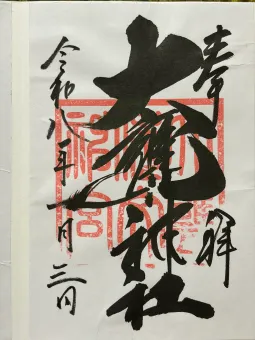 奉拝
大瀧神社
令和八年一月三日